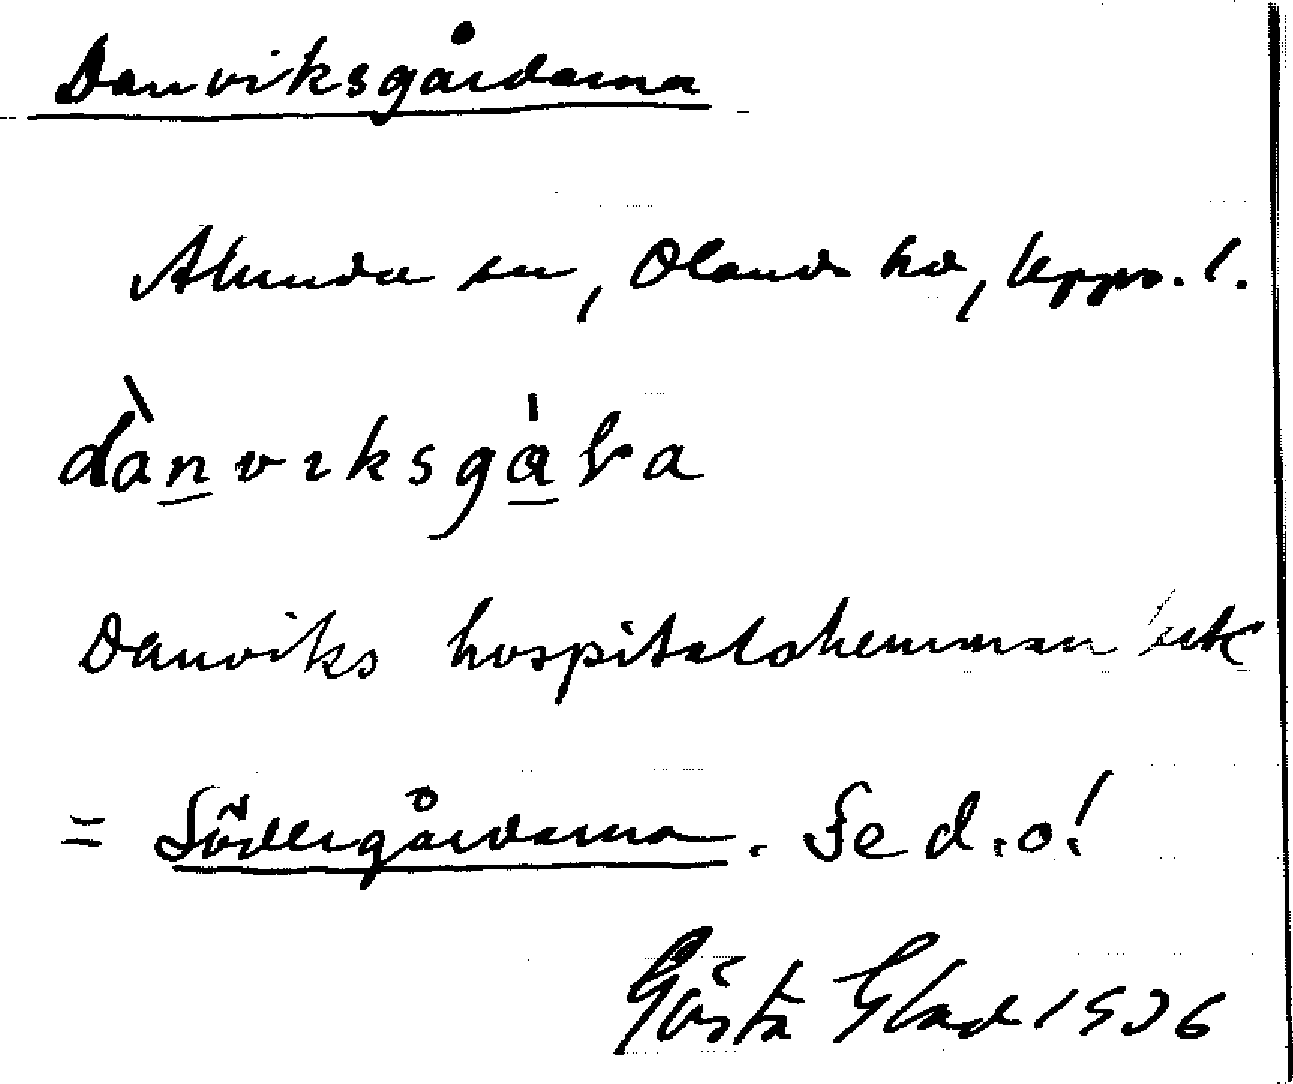 Danviksgårdarna
Alunda sn, Olands hd, Upps. l.
dànviksgàɽa
Danviks hospitalshemman
= Södergårdarna. Se d.o!
Gösta Glad 1936